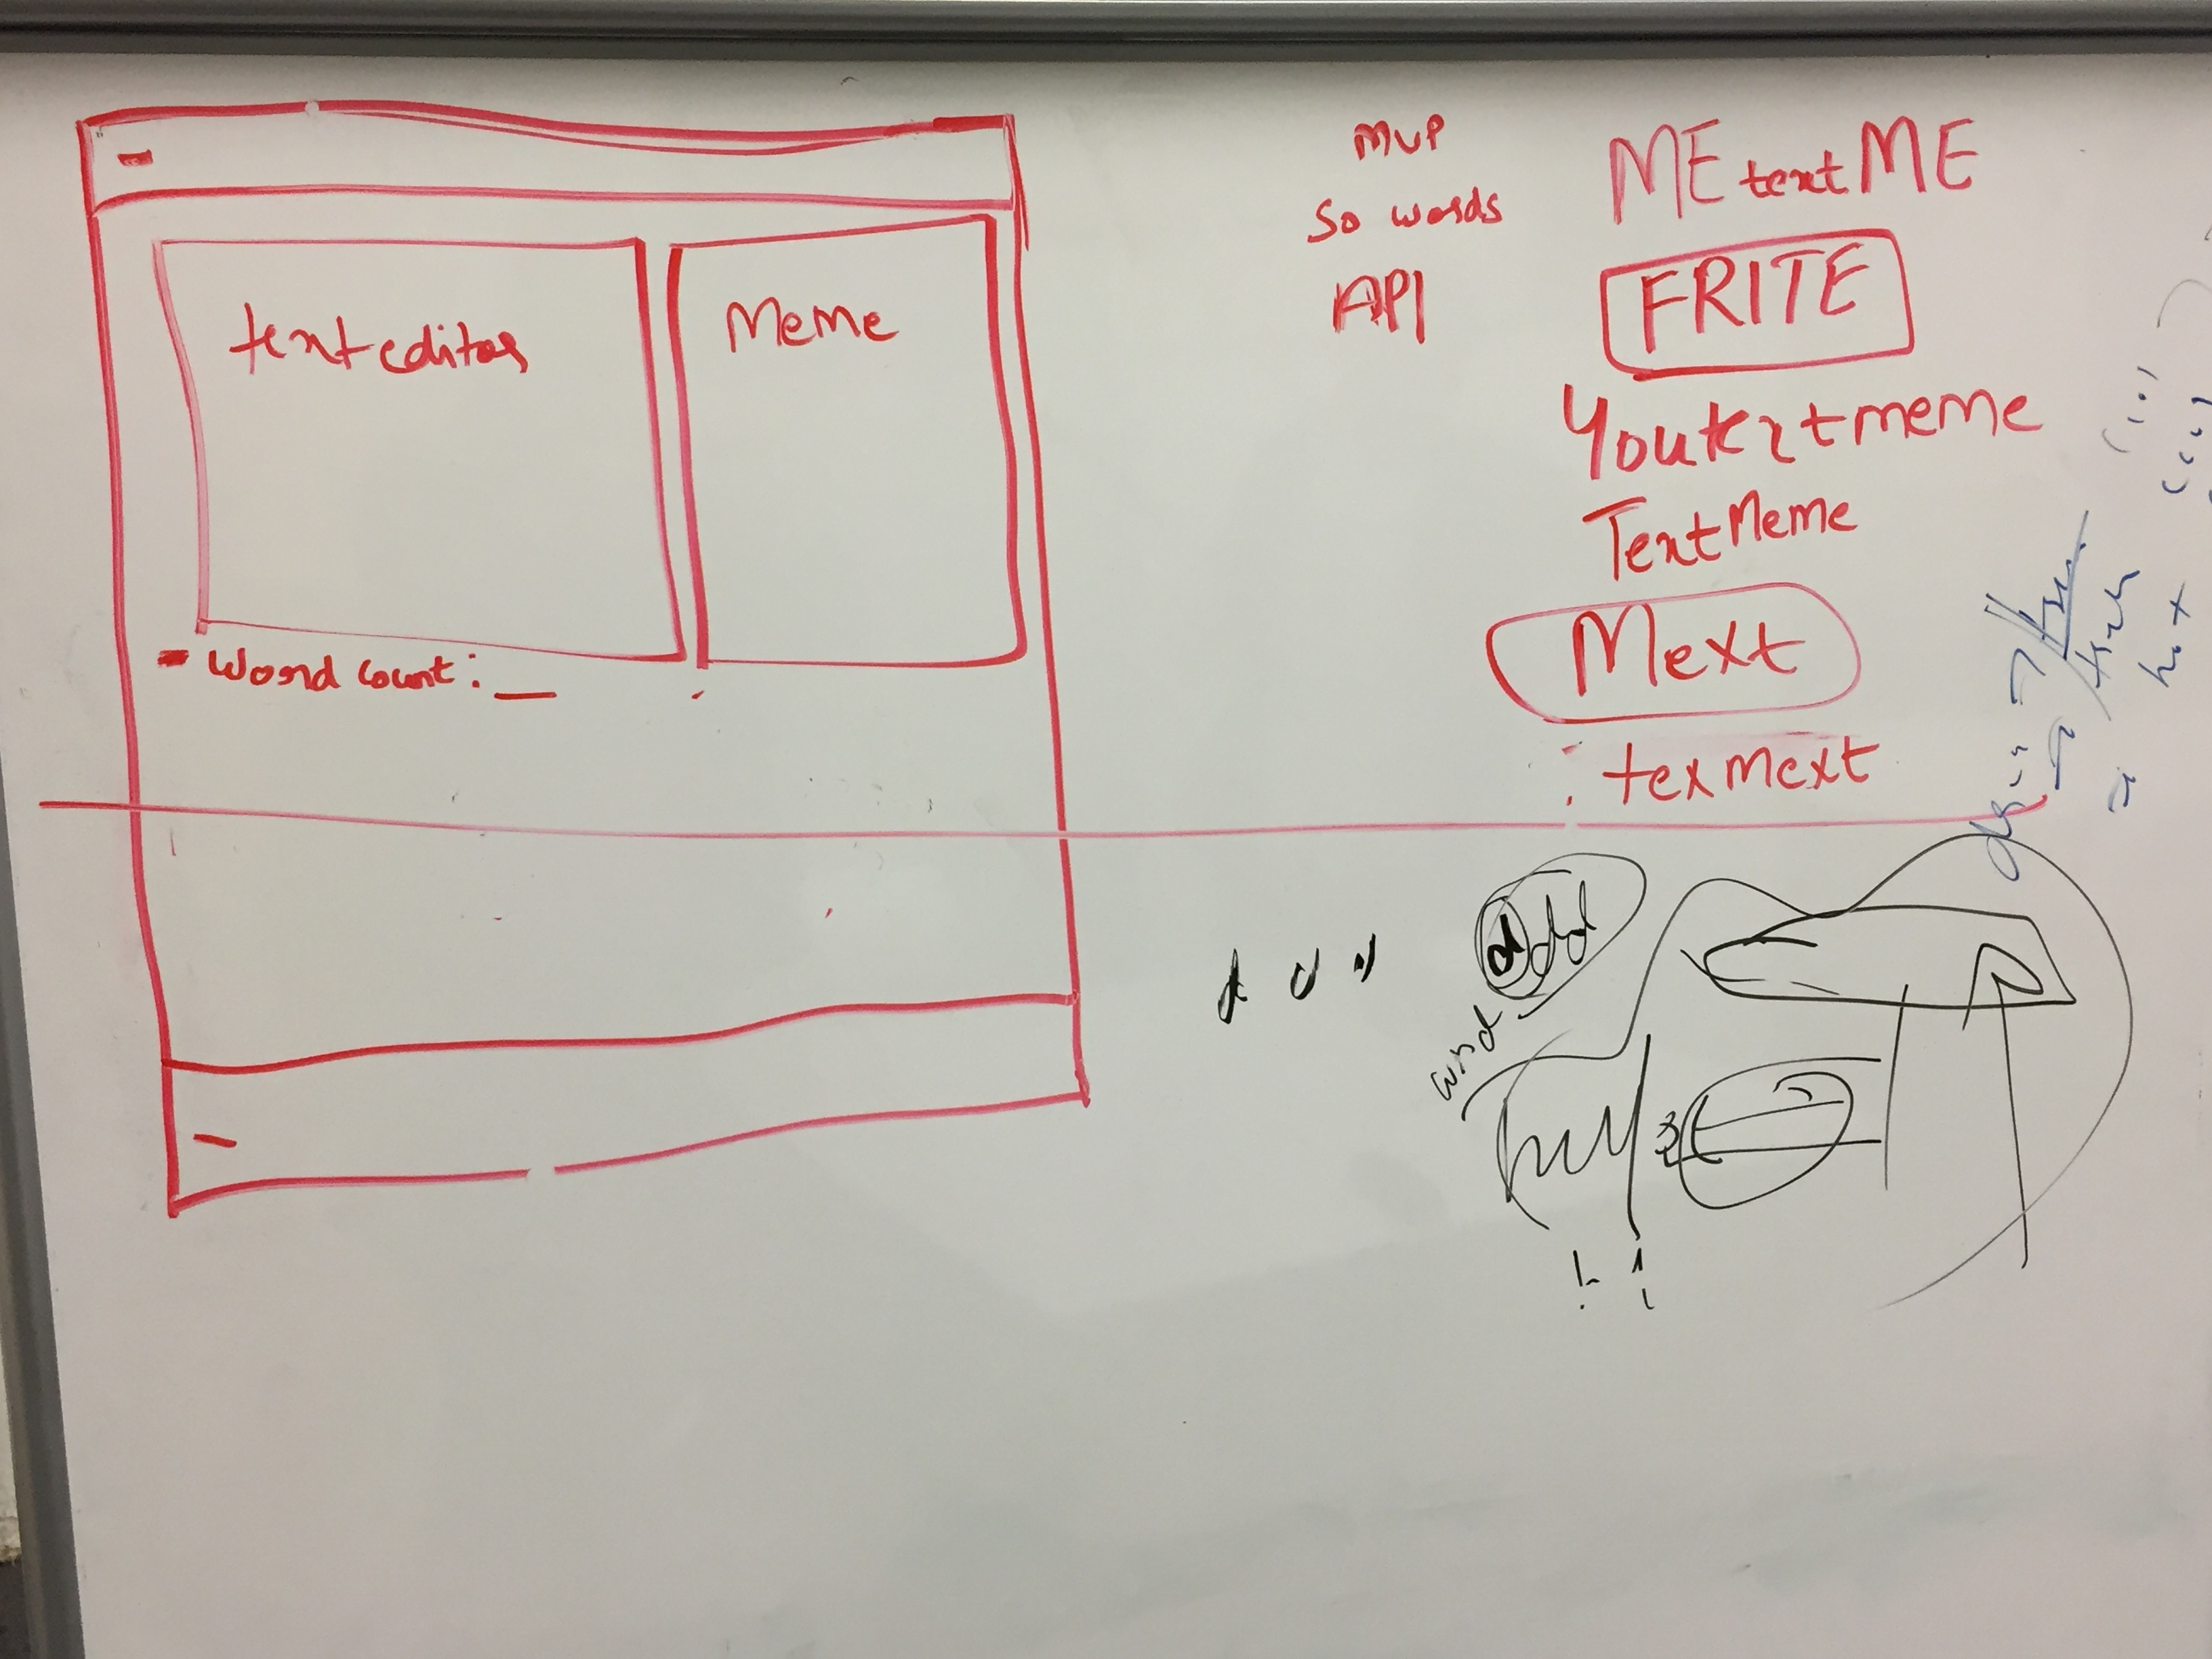 text editor
Meme
Word Count: __
MVP
50 words
API
MEtextME
FRITE
Youtextmeme
TextMeme
Mext
texmext
add
word